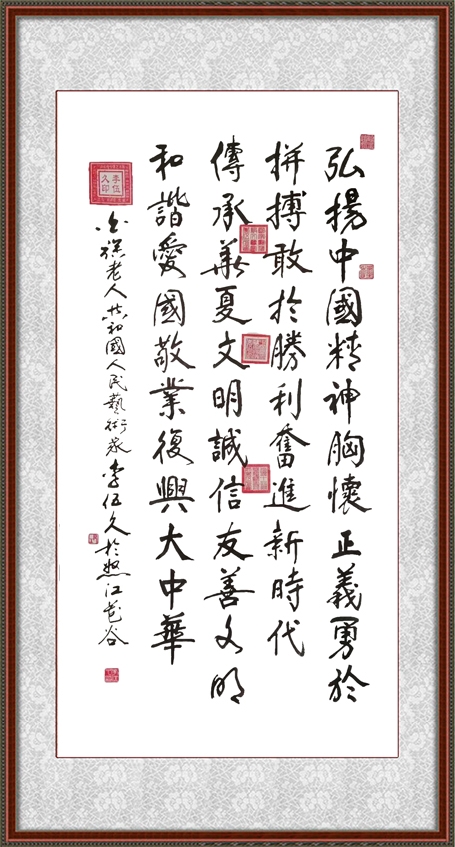 弘揚中國精神胸懷正義勇於
拼搏敢於勝利奮進新時代
傳承華夏文明誠信友善文明
和諧愛國敬業復興大中華
老人共和國人民藝術家李伍久於怒江花谷
李伍久印